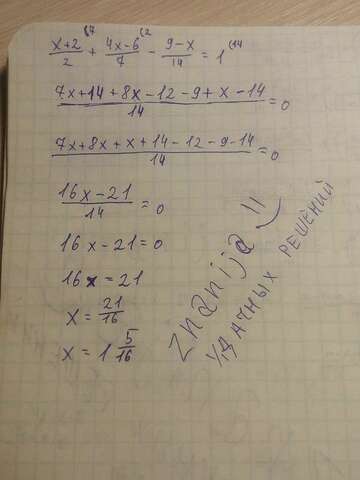 (7 (2 (14
x+2/2 + 4x-6/7 - 9-x/14 = 1
7x+14+8x-12-9+x-14/14 = 0
7x+8x+x+14-12-9-14/14 = 0
16x-21/14 = 0
16x-21=0
16x=21
x = 21/16
x = 1 5/16
Znanija
УДАЧНЫХ РЕШЕНИЙ